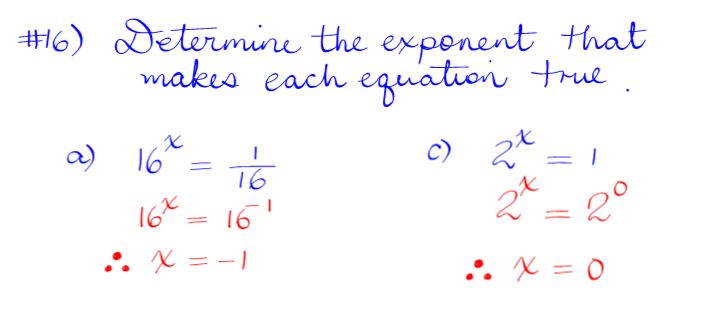 #16) Determine the exponent that
makes each equation true.
a) 16^x = 1/16
16^x = 16^-1
∴ x = -1
c) 2^x = 1
2^x = 2^0
∴ x = 0